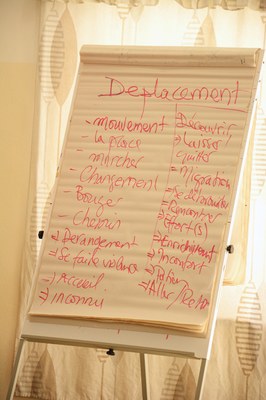 Deplacement
- mouvement
- la
- marcher
- Changement
- Bouger
- Chemin
=> Dérangement
=> Se faite violence
- Accueil
=> inconnu
- Découvrir
- laisser
quitter
= Migration
= Rencontrer
= Effort(s)
=> Enrichissent
=> Inconfort
=> Aller/Retour